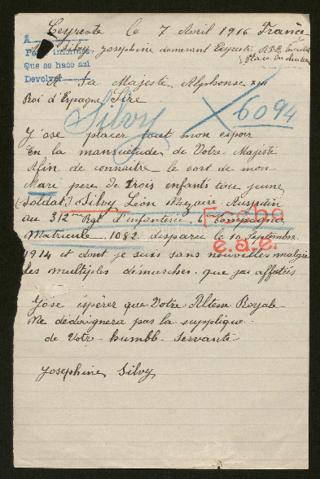 Ceyreste le 7 Avril 1916 France
Silvy Josephine demeurant Ceyreste
A
Que se hace así
Devolver
A Sa Majesté Alphonse XIII
Roi d'Espagne Sire
Silvy
6094
J'ose placer tout mon espoir
En la mansuétude de Votre Majesté
Afin de connaitre le sort de mon
Mari père de trois enfants tous jeune
(Soldat) Silvy Léon
au 312me Rgt d'infanterie Compagnie
Fecha
Matricule 1082 disparu le 10 Septembre
e.a.e.
1914 et dont je suis sans nouvelles malgré
les multiples démarches que j'ai
J'ose espérer que Votre Altesse Royale
Ne dédaignera pas la supplique
de Votre humble Servante
Josephine Silvy